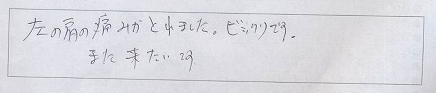 左の肩の痛みがとれました。ビックリです.
また来たいです